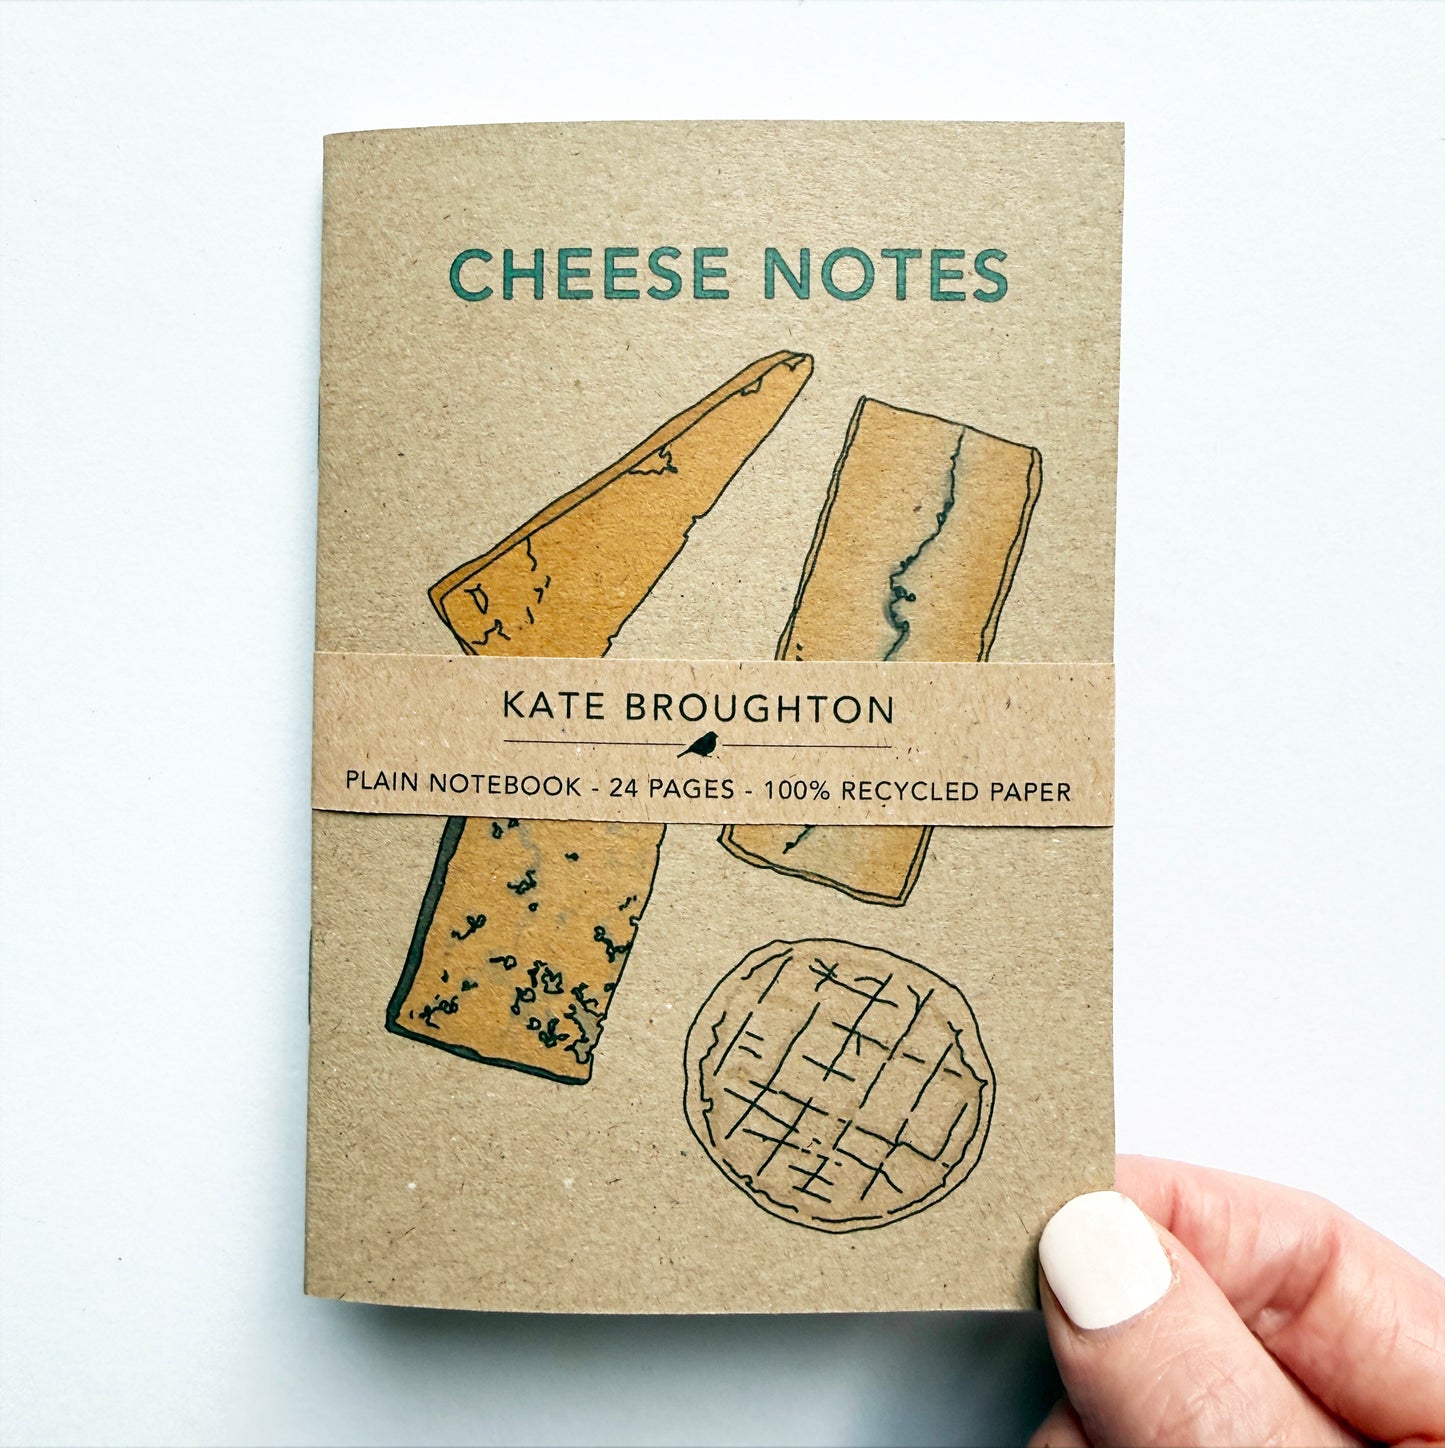 CHEESE NOTES
KATE BROUGHTON
PLAIN NOTEBOOK - 24 PAGES - 100% RECYCLED PAPER